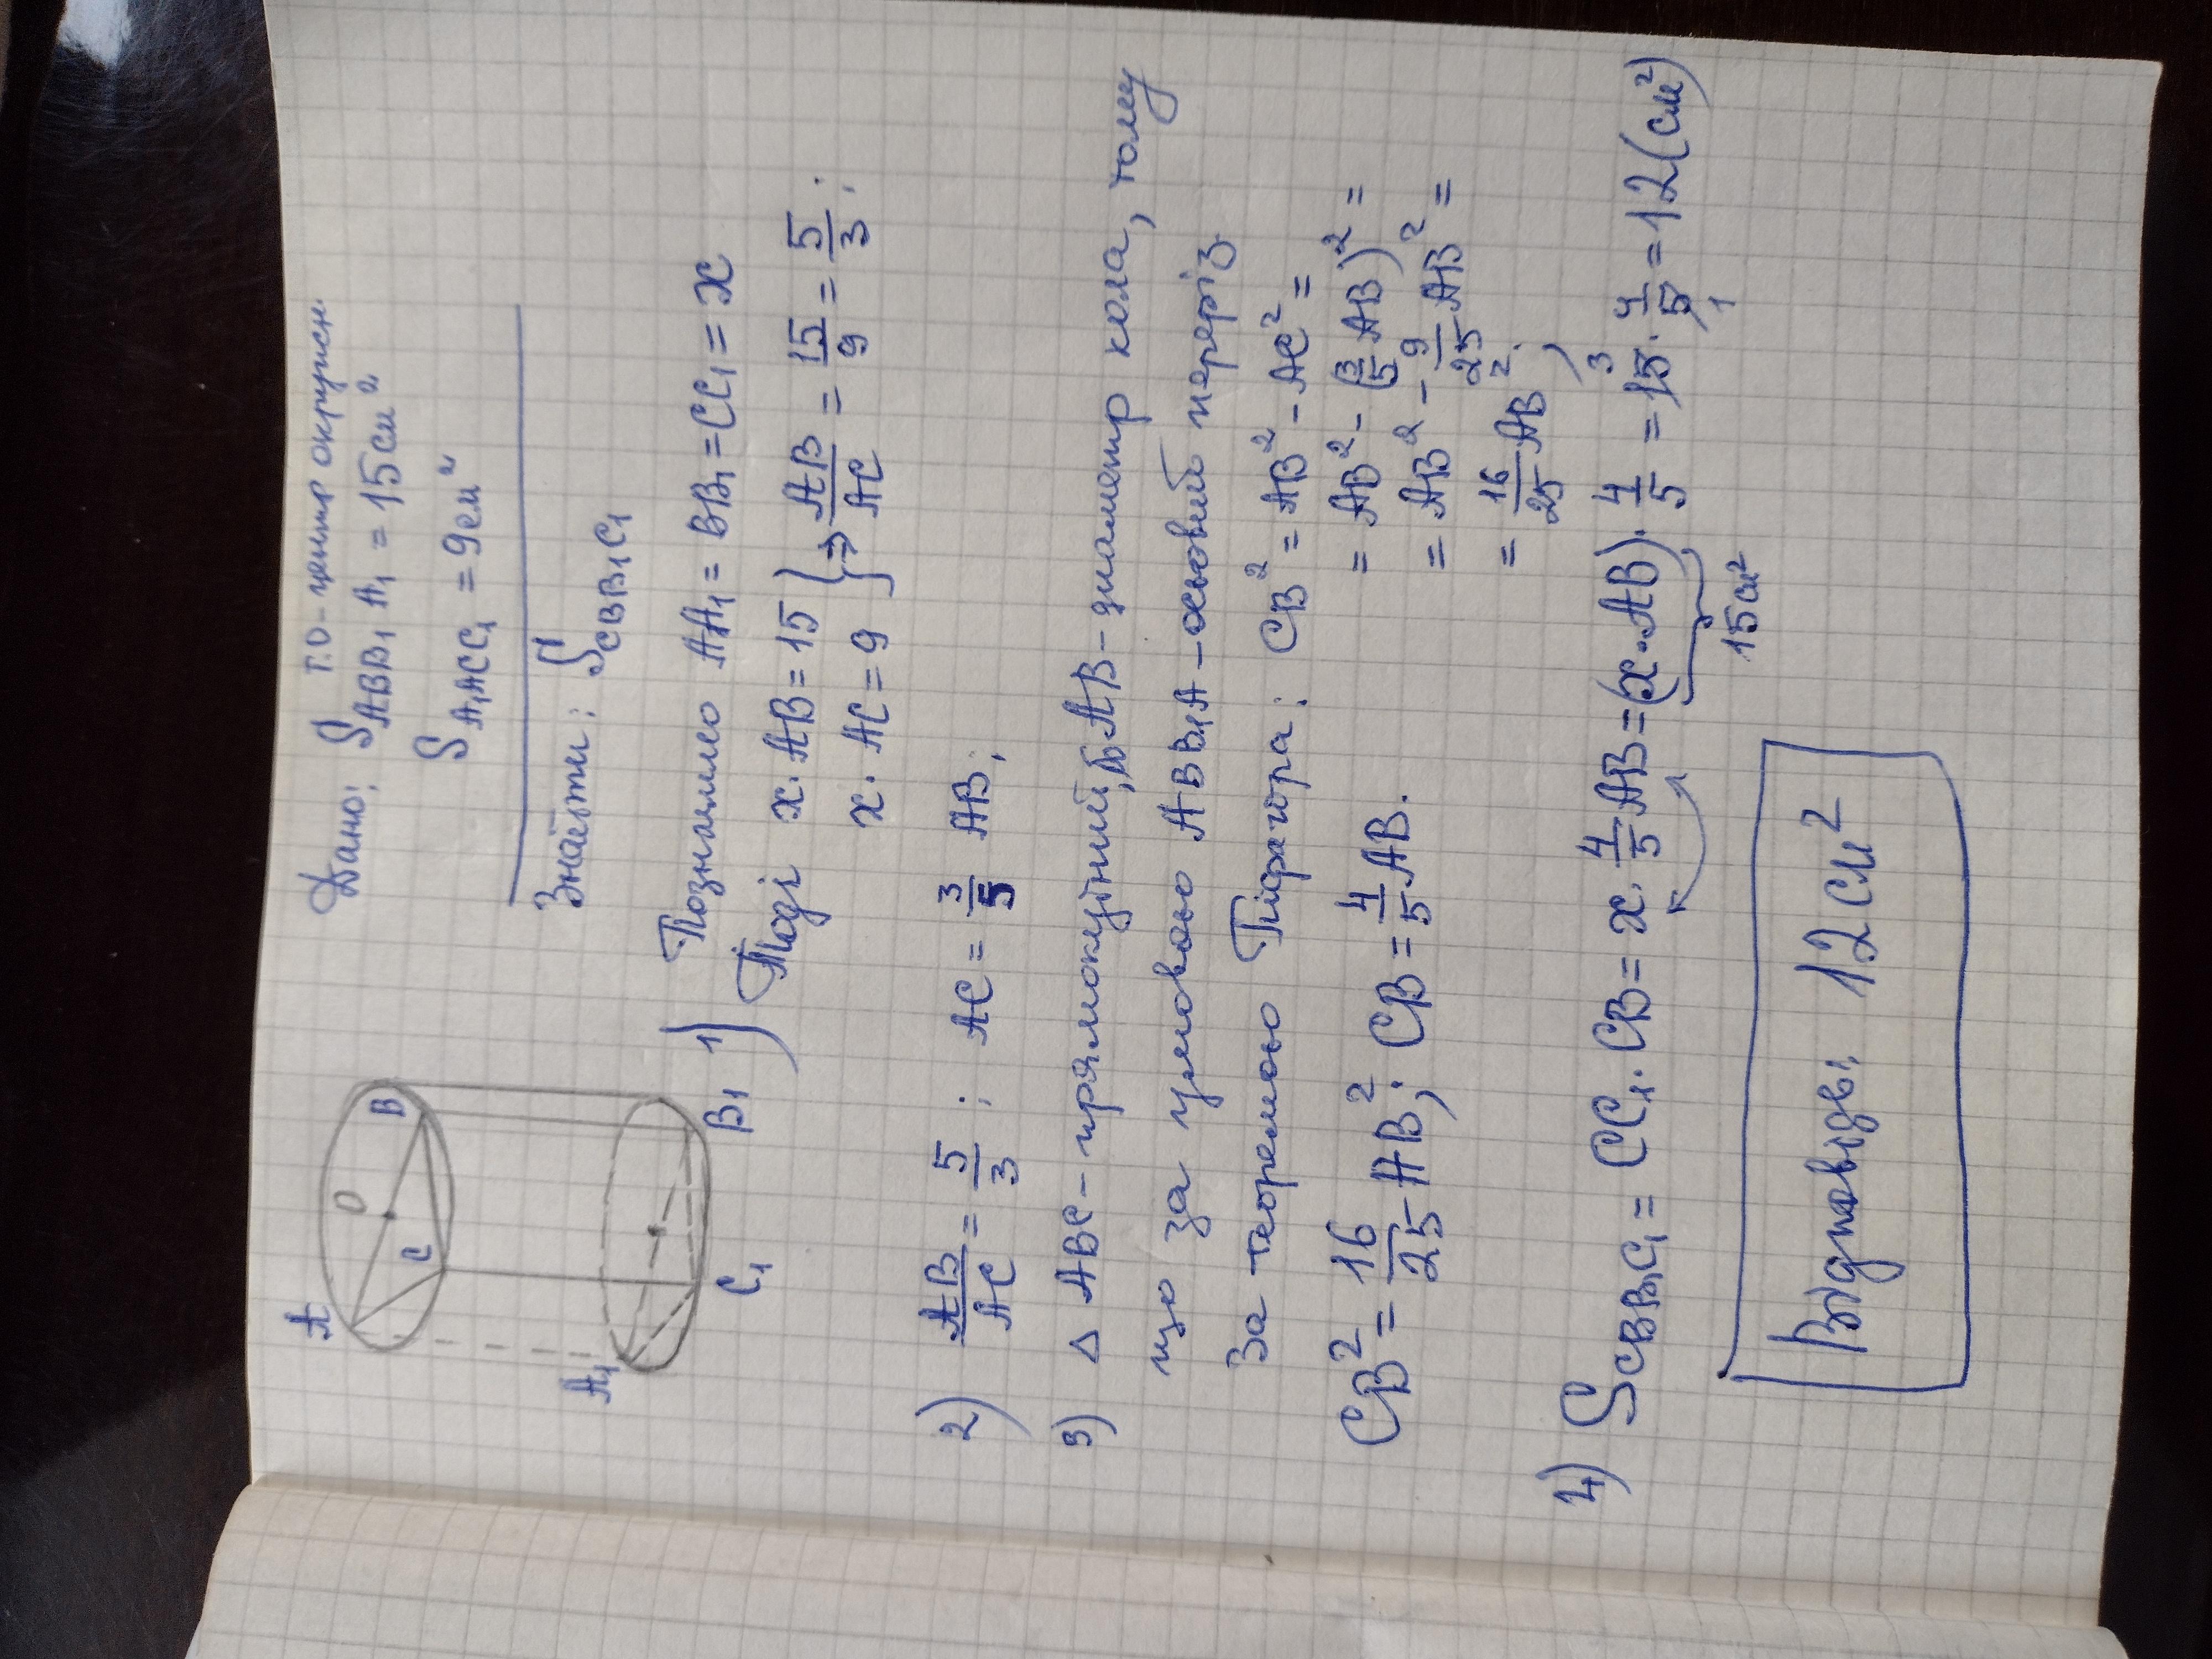 Дано: т.О - центр окружн.
S ABB₁A₁ = 15 см²
S A₁ACC₁ = 9 см²
Знайти: S CBB₁C₁
A O B C
A₁ C₁ B₁
Позначимо AA₁ = BB₁ = CC₁ = x
1) Тоді x·AB = 15 } ⇒ AB/AC = 15/9 = 5/3;
x·AC = 9
2) AB/AC = 5/3; AC = 3/5 AB;
3) △ ABC - прямокутний, бо AB - диаметр кола, тому
що за умовою ABB₁A - осьовий переріз
За теоремою Піфагора: CB² = AB² - AC² =
= AB² - (3/5 AB)² =
= AB² - 9/25 AB² =
= 16/25 AB²;
CB² = 16/25 AB²; CB = 4/5 AB.
4) S CBB₁C₁ = CC₁·CB = x·4/5 AB = (x·AB)·4/5 = 15·4/5 = 12 (см²)
3 1
15 см²
Відповідь: 12 см²